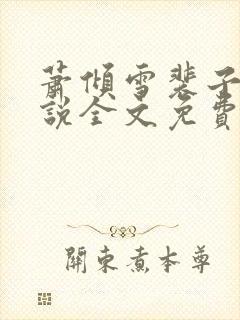 蕭傾雪裴子
說全文免費
關東煮本尊